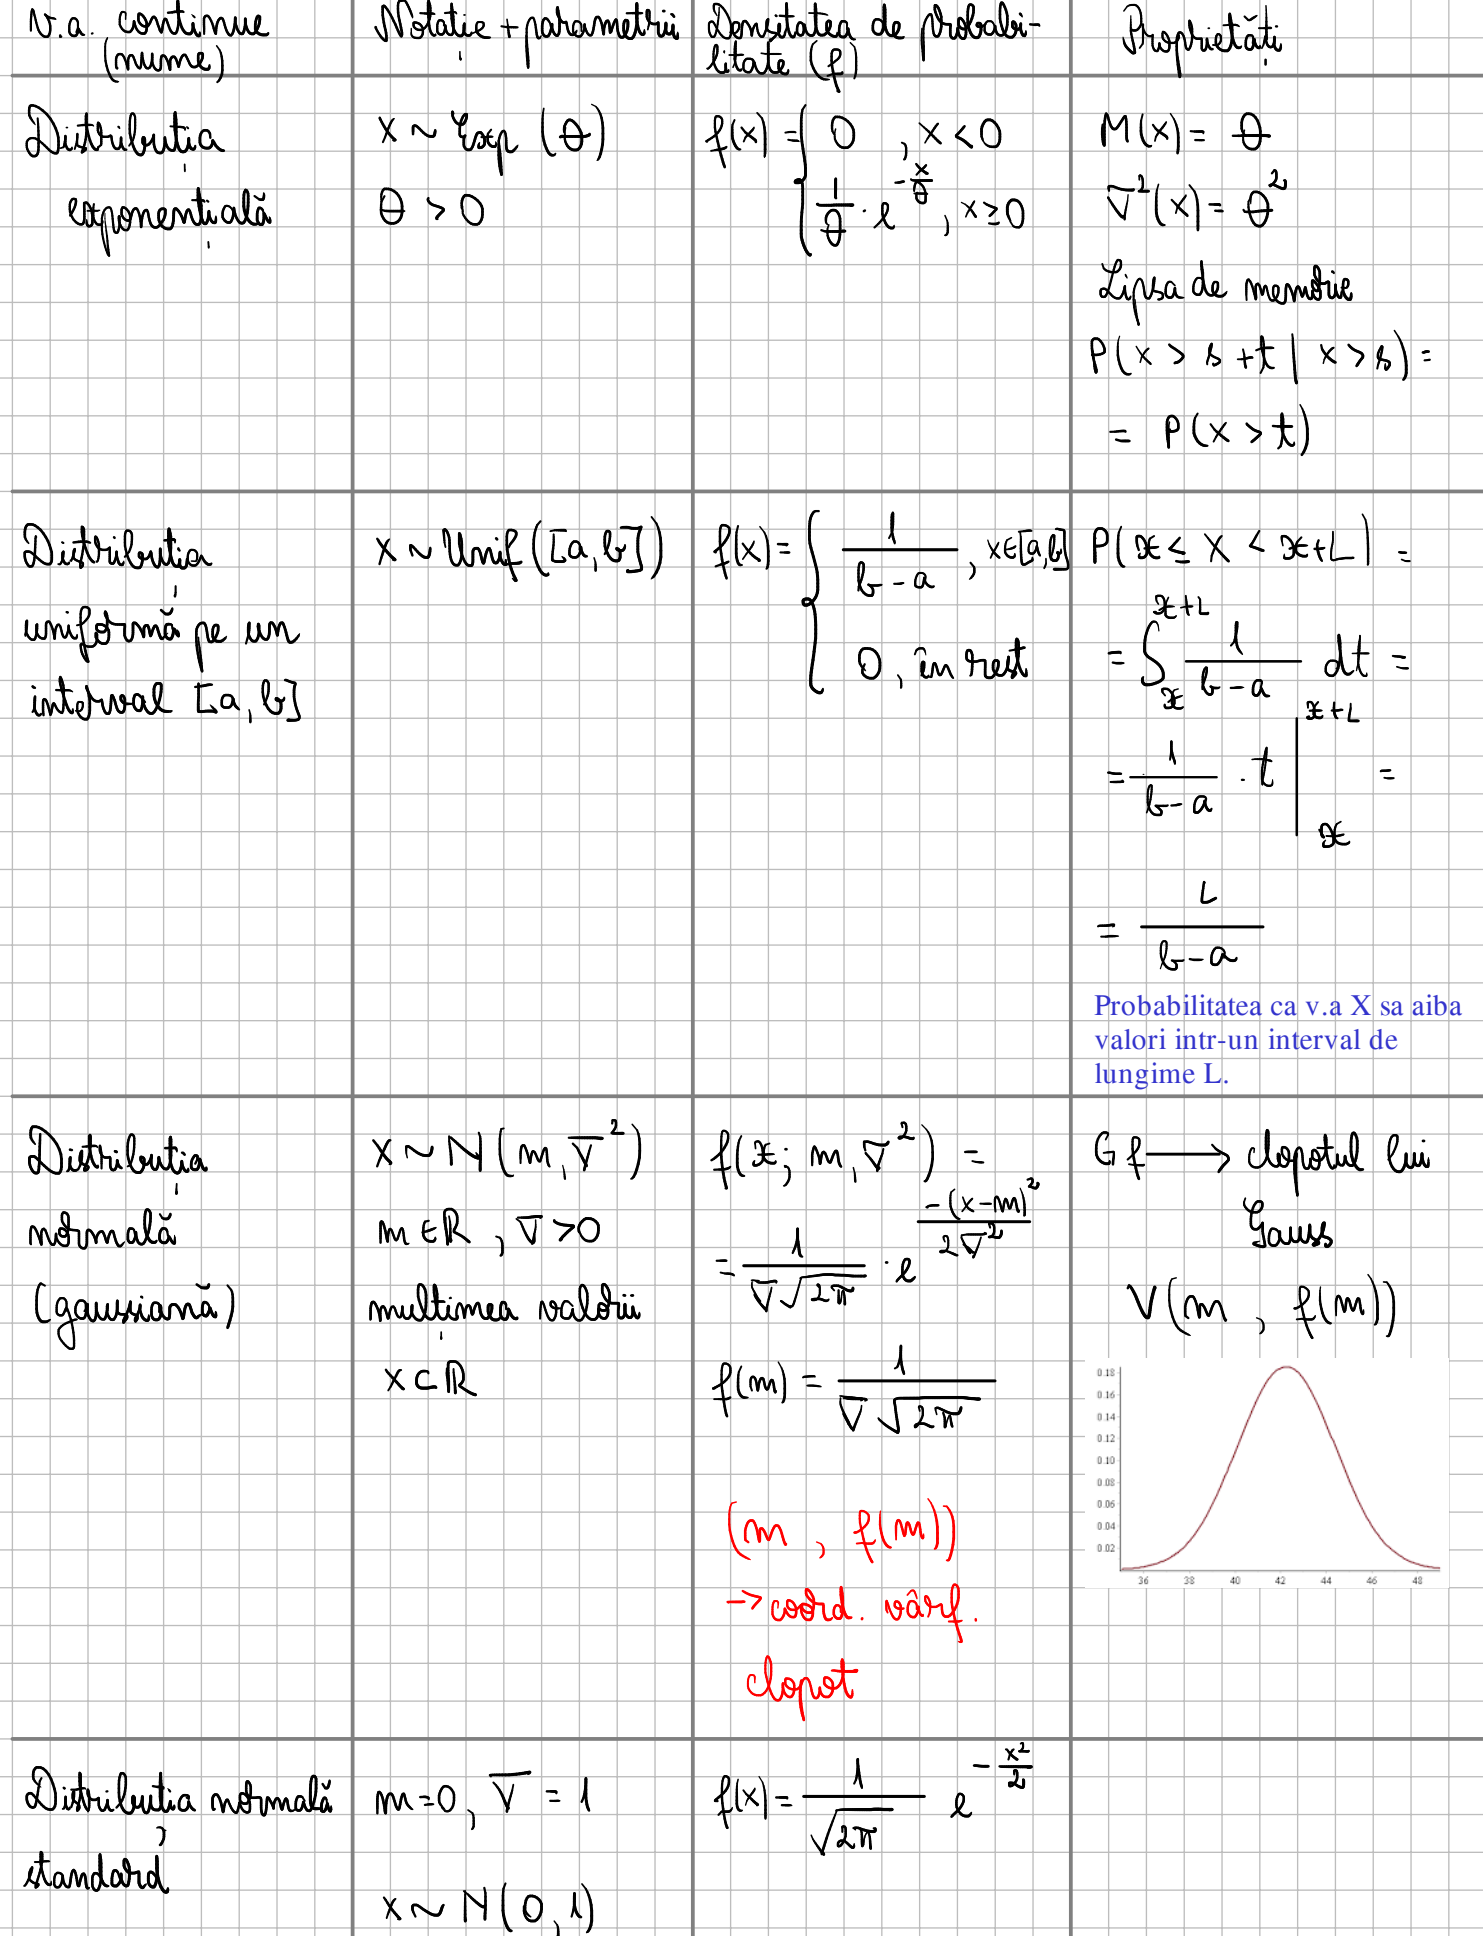 v.a. continue
(nume)
Notație + parametrii
Densitatea de probabi-
litate (f)
Proprietăți
Distribuția
exponențială
X ~ Exp (θ)
θ > 0
f(x) = { 0 , x < 0
1/θ · e^(-x/θ) , x ≥ 0
M(x) = θ
∇²(x) = θ²
Lipsa de memorie
P(x > s + t | x > s) =
= P(x > t)
Distribuția
uniformă pe un
interval [a, b]
X ~ Unif ([a, b])
f(x) = { 1/(b-a) , x∈[a,b]
0 , în rest
P(x ≤ X < x+L) =
= ∫_x^(x+L) 1/(b-a) dt =
= 1/(b-a) · t |_x^(x+L) =
= L/(b-a)
Probabilitatea ca v.a X sa aiba
valori intr-un interval de
lungime L.
Distribuția
normală
(gaussiană)
X ~ N(m, ∇²)
m ∈ ℝ , ∇ > 0
mulțimea valorii
X ⊂ ℝ
f(x; m, ∇²) =
= 1/(∇√2π) · e^(-(x-m)²/2∇²)
f(m) = 1/(∇√2π)
(m , f(m))
→ coord. vârf.
clopot
Gf → clopotul lui
Gauss
V(m , f(m))
0.18
0.16
0.14
0.12
0.10
0.08
0.06
0.04
0.02
36 38 40 42 44 46 48
Distribuția normală
standard
m=0, ∇ = 1
X ~ N(0, 1)
f(x) = 1/√2π e^(-x²/2)